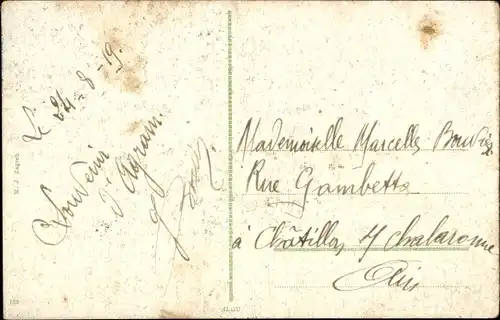 Le 24-8-19.
Souvenir
d'Agram.
Mademoiselle Marcelle Bouvier
Rue Gambetta
à Châtillon s/ Chalaronne
Ain
M. J. Zagreb